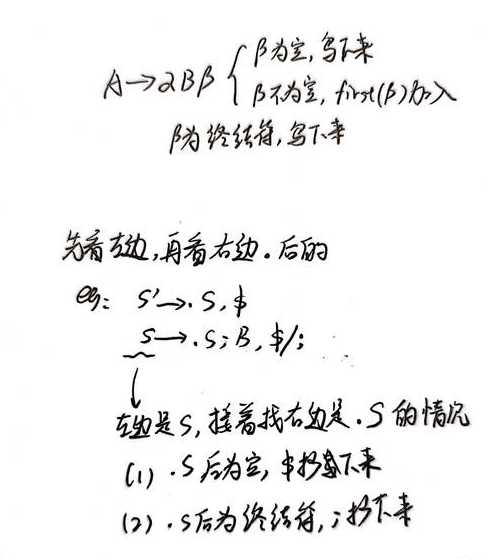 A→αBβ { β为空,写下来
β不为空, first(β)加入
β为终结符,写下来
先看左边,再看右边.后的
eg: S'→.S,$
S→.S;B,$/;
左边是S,接着找右边是.S的情况
(1) .S后为空,$抄下来
(2) .S后为终结符,;抄下来